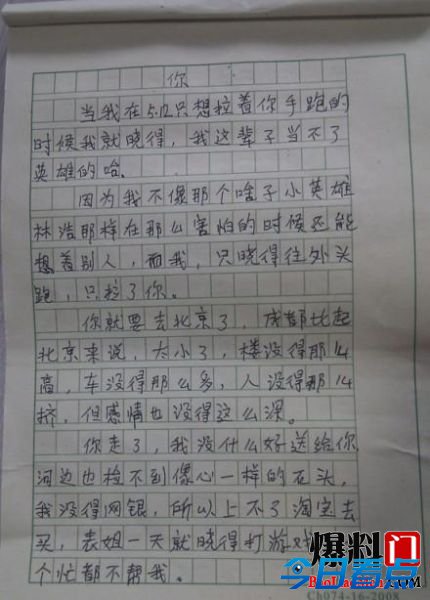 你
当我在5.12只想拉着你手跑的
时候我就晓得，我这辈子当不了
英雄的哈。
因为我不像那个啥子小英雄
林浩那样在那么害怕的时候还能
想着别人，而我，只晓得往外头
跑，只拉了你。
你就要去北京了，成都比起
北京来说，太小了，楼没得那么
高，车没得那么多，人没得那么
挤，但感情也没得这么深。
你走了，我没什么好送给你
河边也捡不到像心一样的石头，
我没得网银，所以上不了淘宝去
买，表姐一天就晓得打游
个忙都不帮我。
爆料门
今日看点
Ch074-16-2008